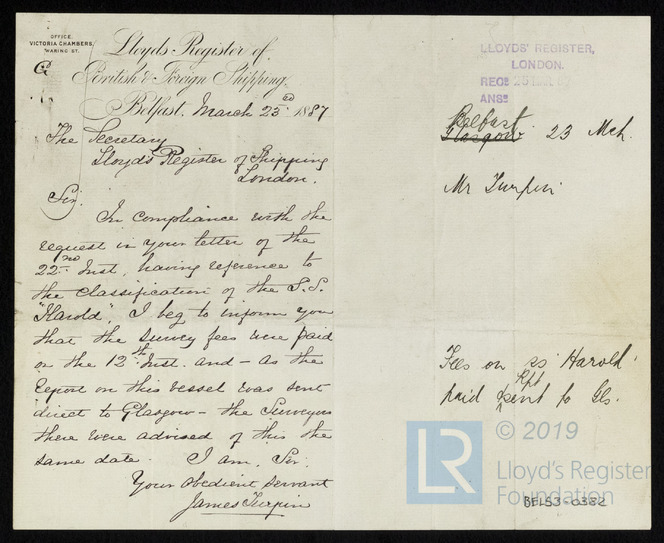 OFFICE
VICTORIA CHAMBERS,
WARING ST.
Lloyds Register of
British & Foreign Shipping.
Belfast, March 23rd 1887
The Secretary
Lloyd's Register of Shipping
London.
Sir,
In compliance with the
request in your letter of the
22nd Inst, having reference to
the classification of the S.S.
"Harold", I beg to inform you
that the survey fees were paid
on the 12th Inst. and - as the
report on this vessel was sent
direct to Glasgow - the Surveyors
there were advised of this the
same date. I am, Sir,
Your obedient servant
James Turpin
LLOYDS' REGISTER,
LONDON.
RECD 25
ANSD
Belfast
Glasgow 23 Mch.
Mr Turpin
Fees on ss Harold
Rpt
paid sent to Gls.
LR
© 2019
Lloyd's Register
Foundation
BEL53-0382